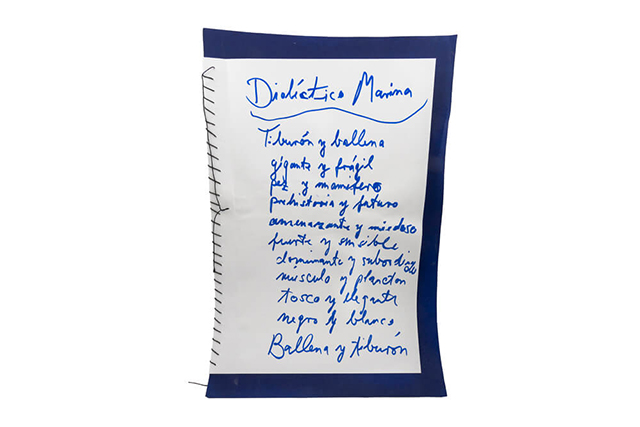 Dialéctica Marina
Tiburón y ballena
gigante y frágil
pez y mamífero
prehistoria y futuro
amenazante y miedoso
fuerte y sensible
dominante y subordinado
músculo y plancton
tosco y elegante
negro y blanco
Ballena y tiburón